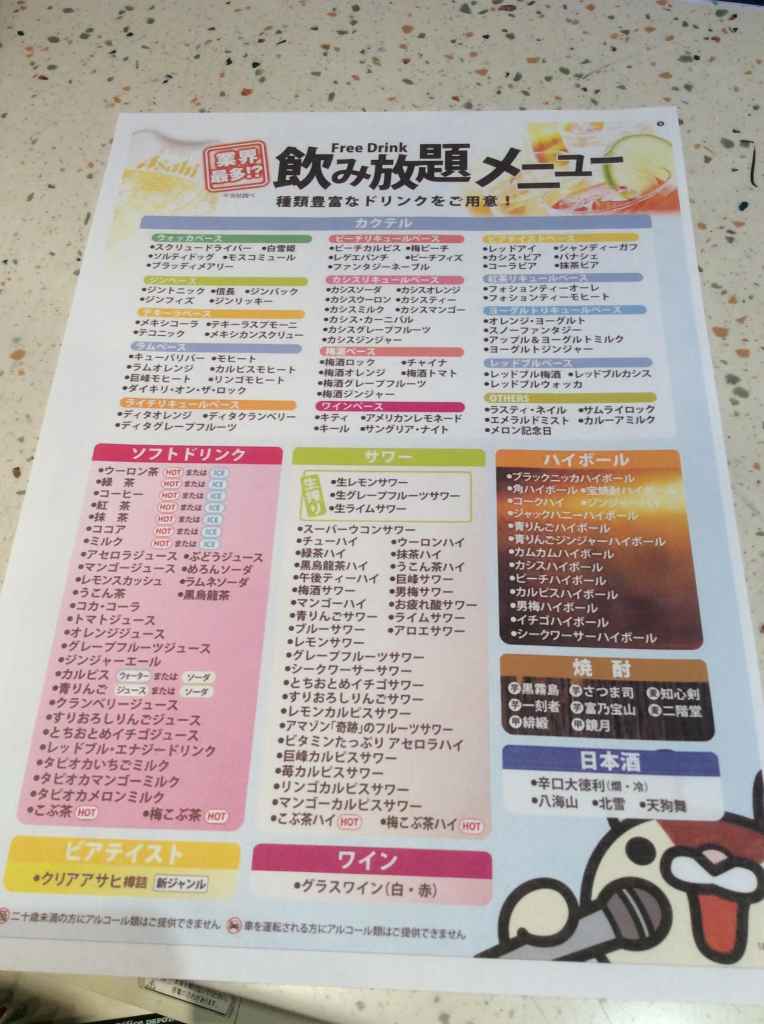 Asahi
業界
最多!?
Free Drink
飲み放題 メニュー
種類豊富なドリンクをご用意！
カクテル
ウォッカベース
•スクリュードライバー •白雪姫
•ソルティドッグ •モスコミュール
•ブラッディメアリー
ジンベース
•ジントニック •信長 •ジンバック
•ジンフィズ •ジンリッキー
テキーラベース
•メキシコーラ •テキーラスプモーニ
•テコニック •メキシカンスクリュー
ラムベース
•キューバリバー •モヒート
•ラムオレンジ •カルピスモヒート
•巨峰モヒート •リンゴモヒート
•ダイキリ・オン・ザ・ロック
ライチリキュールベース
•ディタオレンジ •ディタクランベリー
•ディタグレープフルーツ
ピーチリキュールベース
•ピーチカルピス •梅ピーチ
•レゲエパンチ •ピーチフィズ
•ファンタジーネーブル
カシスリキュールベース
•カシスソーダ •カシスオレンジ
•カシスウーロン •カシスティー
•カシスミルク •カシスマンゴー
•カシス・カーニバル
•カシスグレープフルーツ
•カシスジンジャー
梅酒ベース
•梅酒ロック •チャイナ
•梅酒オレンジ •梅酒トマト
•梅酒グレープフルーツ
•梅酒ジンジャー
ワインベース
•キティ •アメリカンレモネード
•キール •サングリア・ナイト
ビアテイストベース
•レッドアイ •シャンディーガフ
•カシス・ビア •パナシェ
•コーラビア •抹茶ビア
紅茶リキュールベース
•フォションティーオーレ
•フォションティーモヒート
ヨーグルトリキュールベース
•オレンジ・ヨーグルト
•スノーファンタジー
•アップル＆ヨーグルトミルク
•ヨーグルトジンジャー
レッドブルベース
•レッドブル梅酒 •レッドブルカシス
•レッドブルウォッカ
OTHERS
•ラスティ・ネイル •サムライロック
•エメラルドミスト •カルーアミルク
•メロン記念日
ソフトドリンク
•ウーロン茶 HOT または ICE
•緑 茶 HOT または ICE
•コーヒー HOT または ICE
•紅 茶 HOT または ICE
•抹 茶 HOT または ICE
•ココア HOT または ICE
•ミルク HOT または ICE
•アセロラジュース •ぶどうジュース
•マンゴージュース •めろんソーダ
•レモンスカッシュ •ラムネソーダ
•うこん茶 •黒烏龍茶
•コカ・コーラ
•トマトジュース
•オレンジジュース
•グレープフルーツジュース
•ジンジャーエール
•カルピス ウォーター または ソーダ
•青りんご ジュース または ソーダ
•クランベリージュース
•すりおろしりんごジュース
•とちおとめイチゴジュース
•レッドブル・エナジードリンク
•タピオカいちごミルク
•タピオカマンゴーミルク
•タピオカメロンミルク
•こぶ茶 HOT •梅こぶ茶 HOT
サワー
生搾り
•生レモンサワー
•生グレープフルーツサワー
•生ライムサワー
•スーパーウコンサワー
•チューハイ •ウーロンハイ
•緑茶ハイ •抹茶ハイ
•黒烏龍茶ハイ •うこん茶ハイ
•午後ティーハイ •巨峰サワー
•梅酒サワー •男梅サワー
•マンゴーハイ •お疲れ酸サワー
•青りんごサワー •ライムサワー
•ブルーサワー •アロエサワー
•レモンサワー
•グレープフルーツサワー
•シークワーサーサワー
•とちおとめイチゴサワー
•すりおろしりんごサワー
•レモンカルピスサワー
•アマゾン「奇跡」のフルーツサワー
•ビタミンたっぷり アセロラハイ
•巨峰カルピスサワー
•苺カルピスサワー
•リンゴカルピスサワー
•マンゴーカルピスサワー
•こぶ茶ハイ HOT •梅こぶ茶ハイ HOT
ハイボール
•ブラックニッカハイボール
•角ハイボール •宝焼酎ハイボール
•コークハイ •ジンジャーハイ
•ジャックハニーハイボール
•青りんごハイボール
•青りんごジンジャーハイボール
•カムカムハイボール
•カシスハイボール
•ピーチハイボール
•カルピスハイボール
•男梅ハイボール
•イチゴハイボール
•シークワーサーハイボール
焼 酎
芋黒霧島 芋さつま司 麦知心剣
芋一刻者 芋富乃宝山 麦二階堂
甲緋緞 甲鏡月
日本酒
•辛口大徳利（燗・冷）
•八海山 •北雪 •天狗舞
ビアテイスト
•クリアアサヒ樽詰 新ジャンル
ワイン
•グラスワイン（白・赤）
二十歳未満の方にアルコール類はご提供できません 車を運転される方にアルコール類はご提供できません